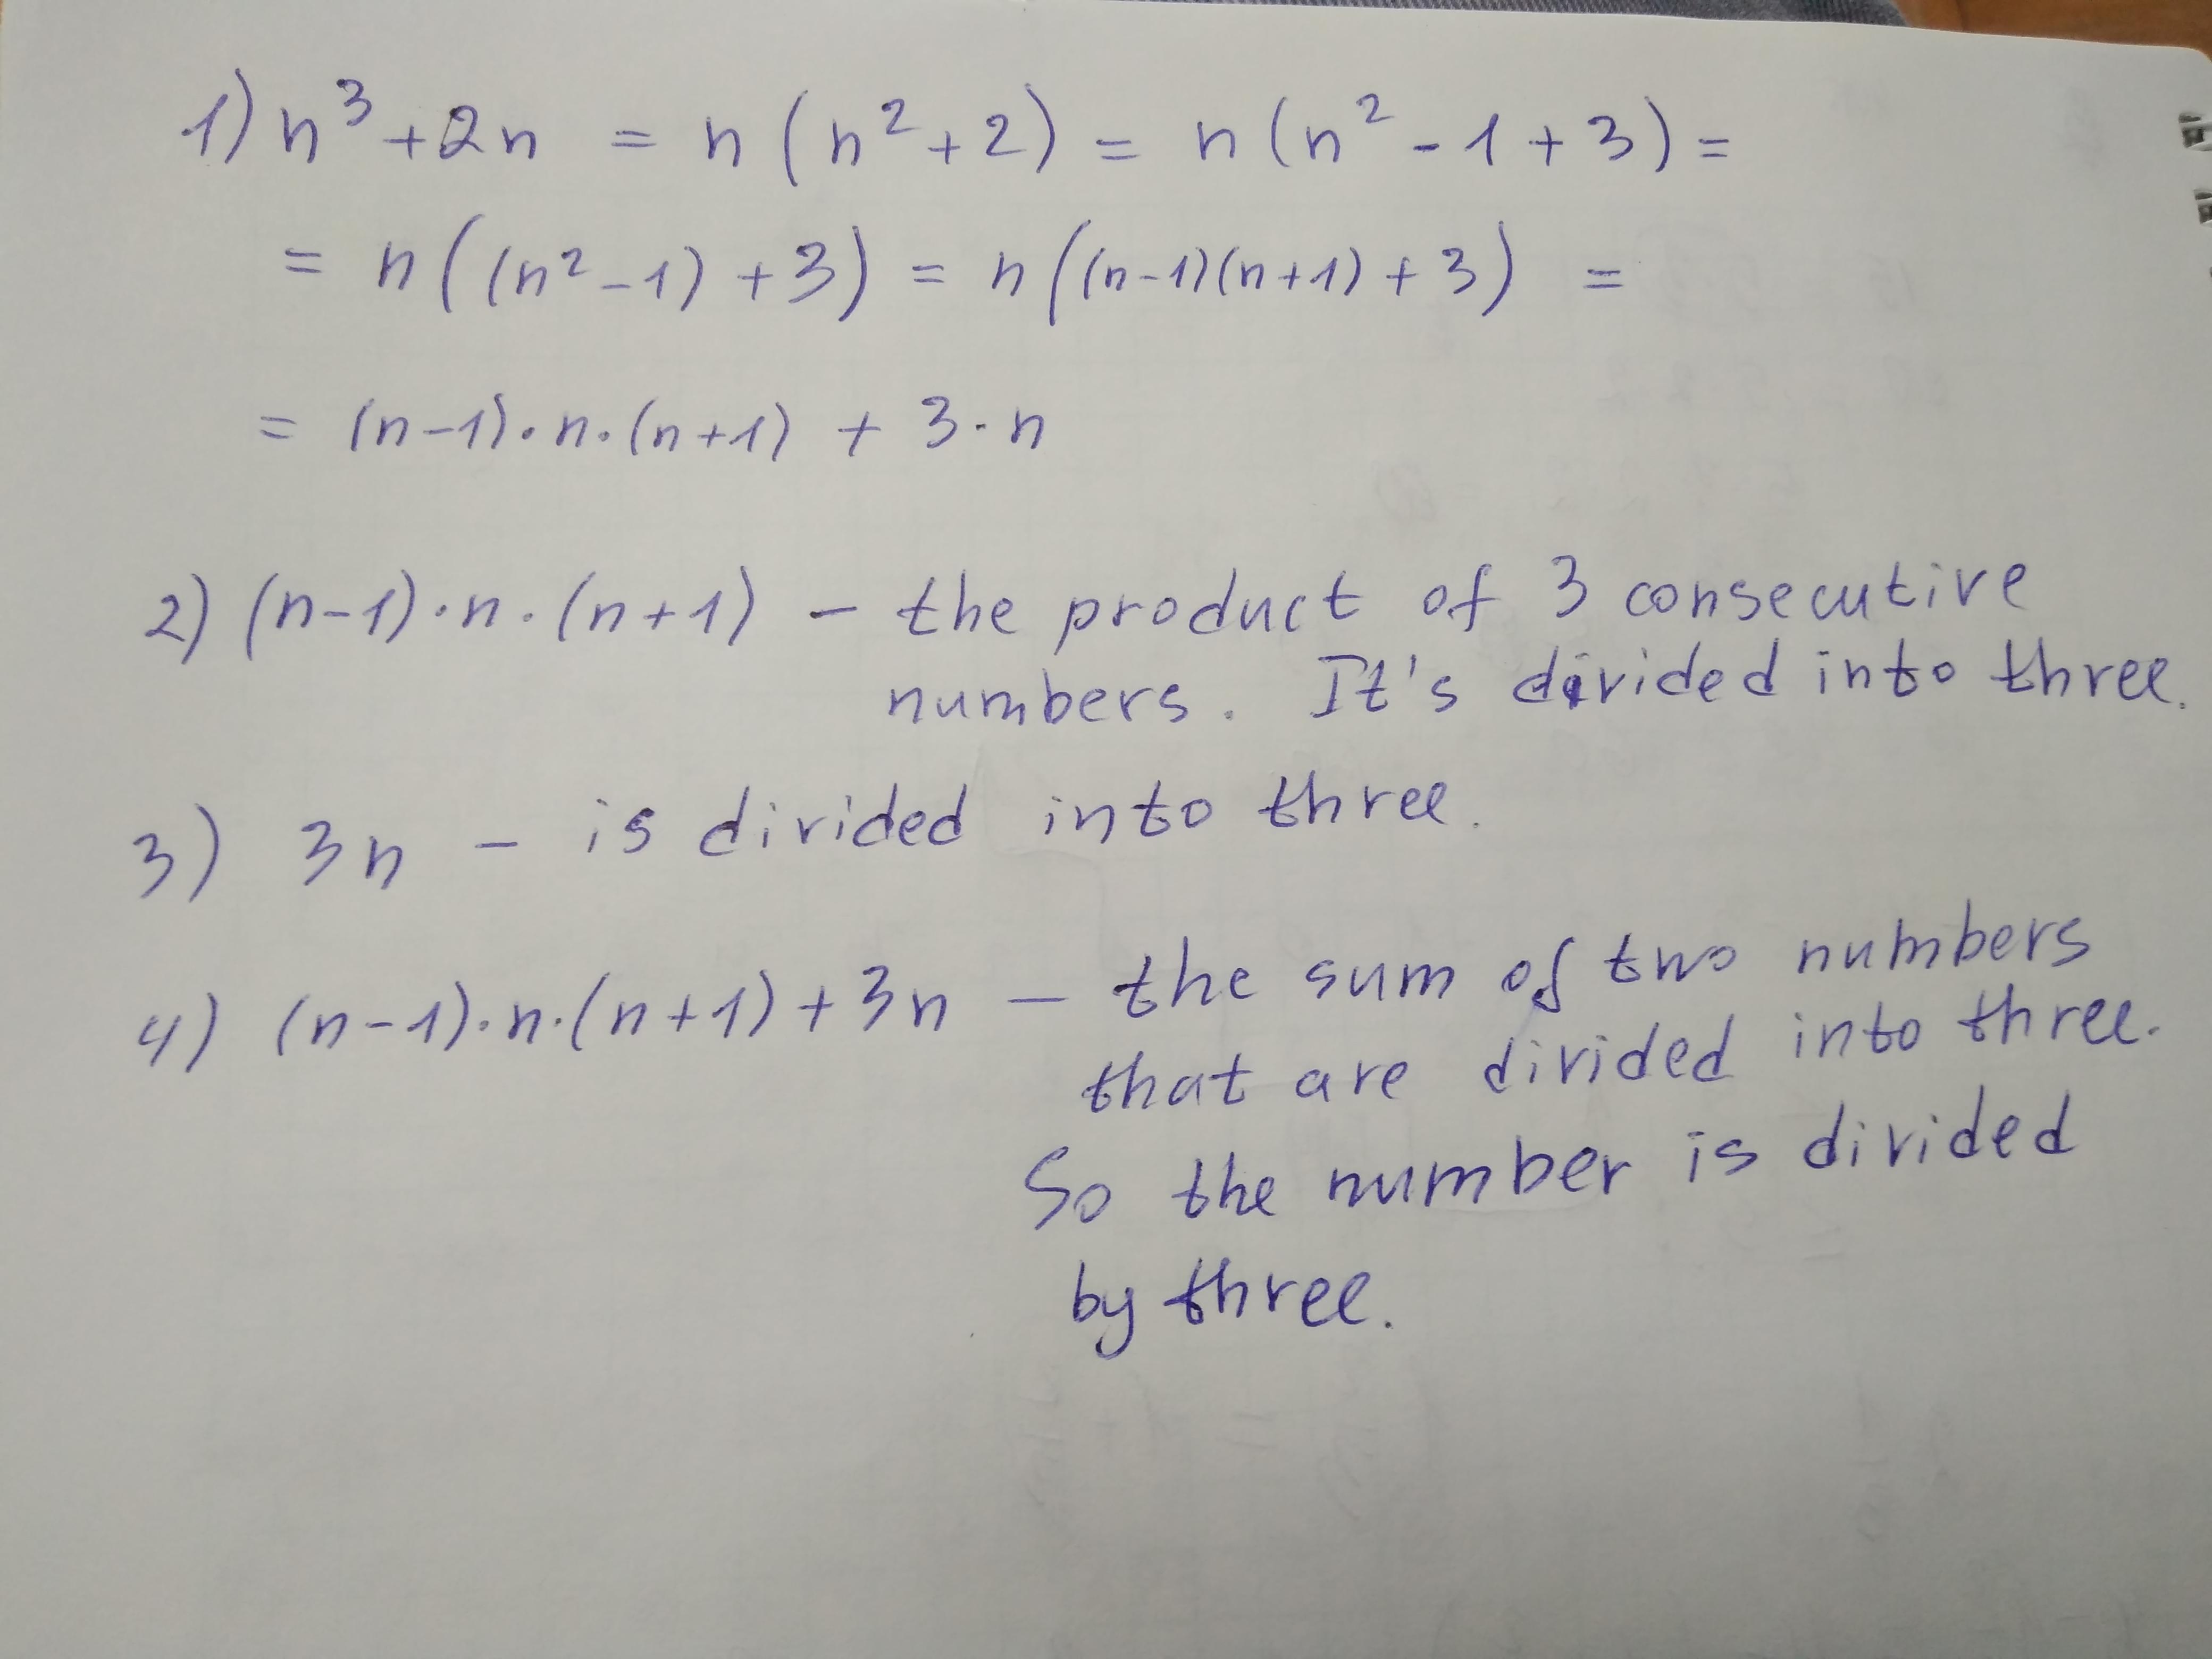 1) n³ + 2n = n(n² + 2) = n(n² - 1 + 3) =
= n((n² - 1) + 3) = n((n-1)(n+1) + 3) =
= (n-1)·n·(n+1) + 3·n
2) (n-1)·n·(n+1) – the product of 3 consecutive
numbers. It's divided into three.
3) 3n – is divided into three.
4) (n-1)·n·(n+1) + 3n – the sum of two numbers
that are divided into three.
So the number is divided
by three.